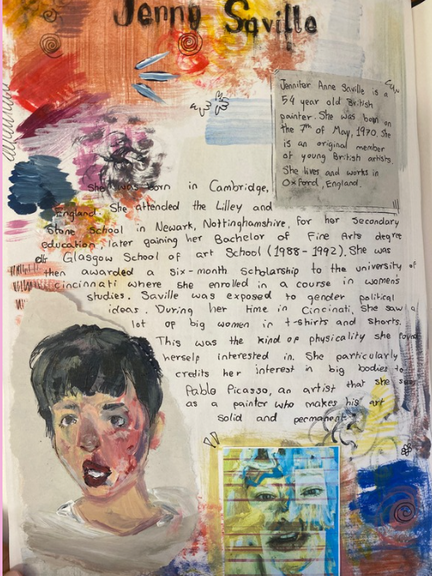 Jenny Saville
Jennifer Anne Saville is a
54 year old British
painter. She was born on
the 7th of May, 1970. She
is an original member
of young British artists.
She lives and works in
Oxford, England.
She was born in Cambridge,
England. She attended the Lilley and
Stone School in Newark, Nottinghamshire, for her secondary
education, later gaining her Bachelor of Fine Arts degree
Glasgow School of art School (1988-1992). She was
then awarded a six-month scholarship to the university of
cincinnati where she enrolled in a course in women's
studies. Saville was exposed to gender political
ideas. During her time in Cincinati, she saw a
lot of big women in t-shirts and shorts.
This was the kind of physicality she found
herself interested in. She particularly
credits her interest in big bodies to
Pablo Picasso, an artist that she sees
as a painter who makes his art
solid and permanent.